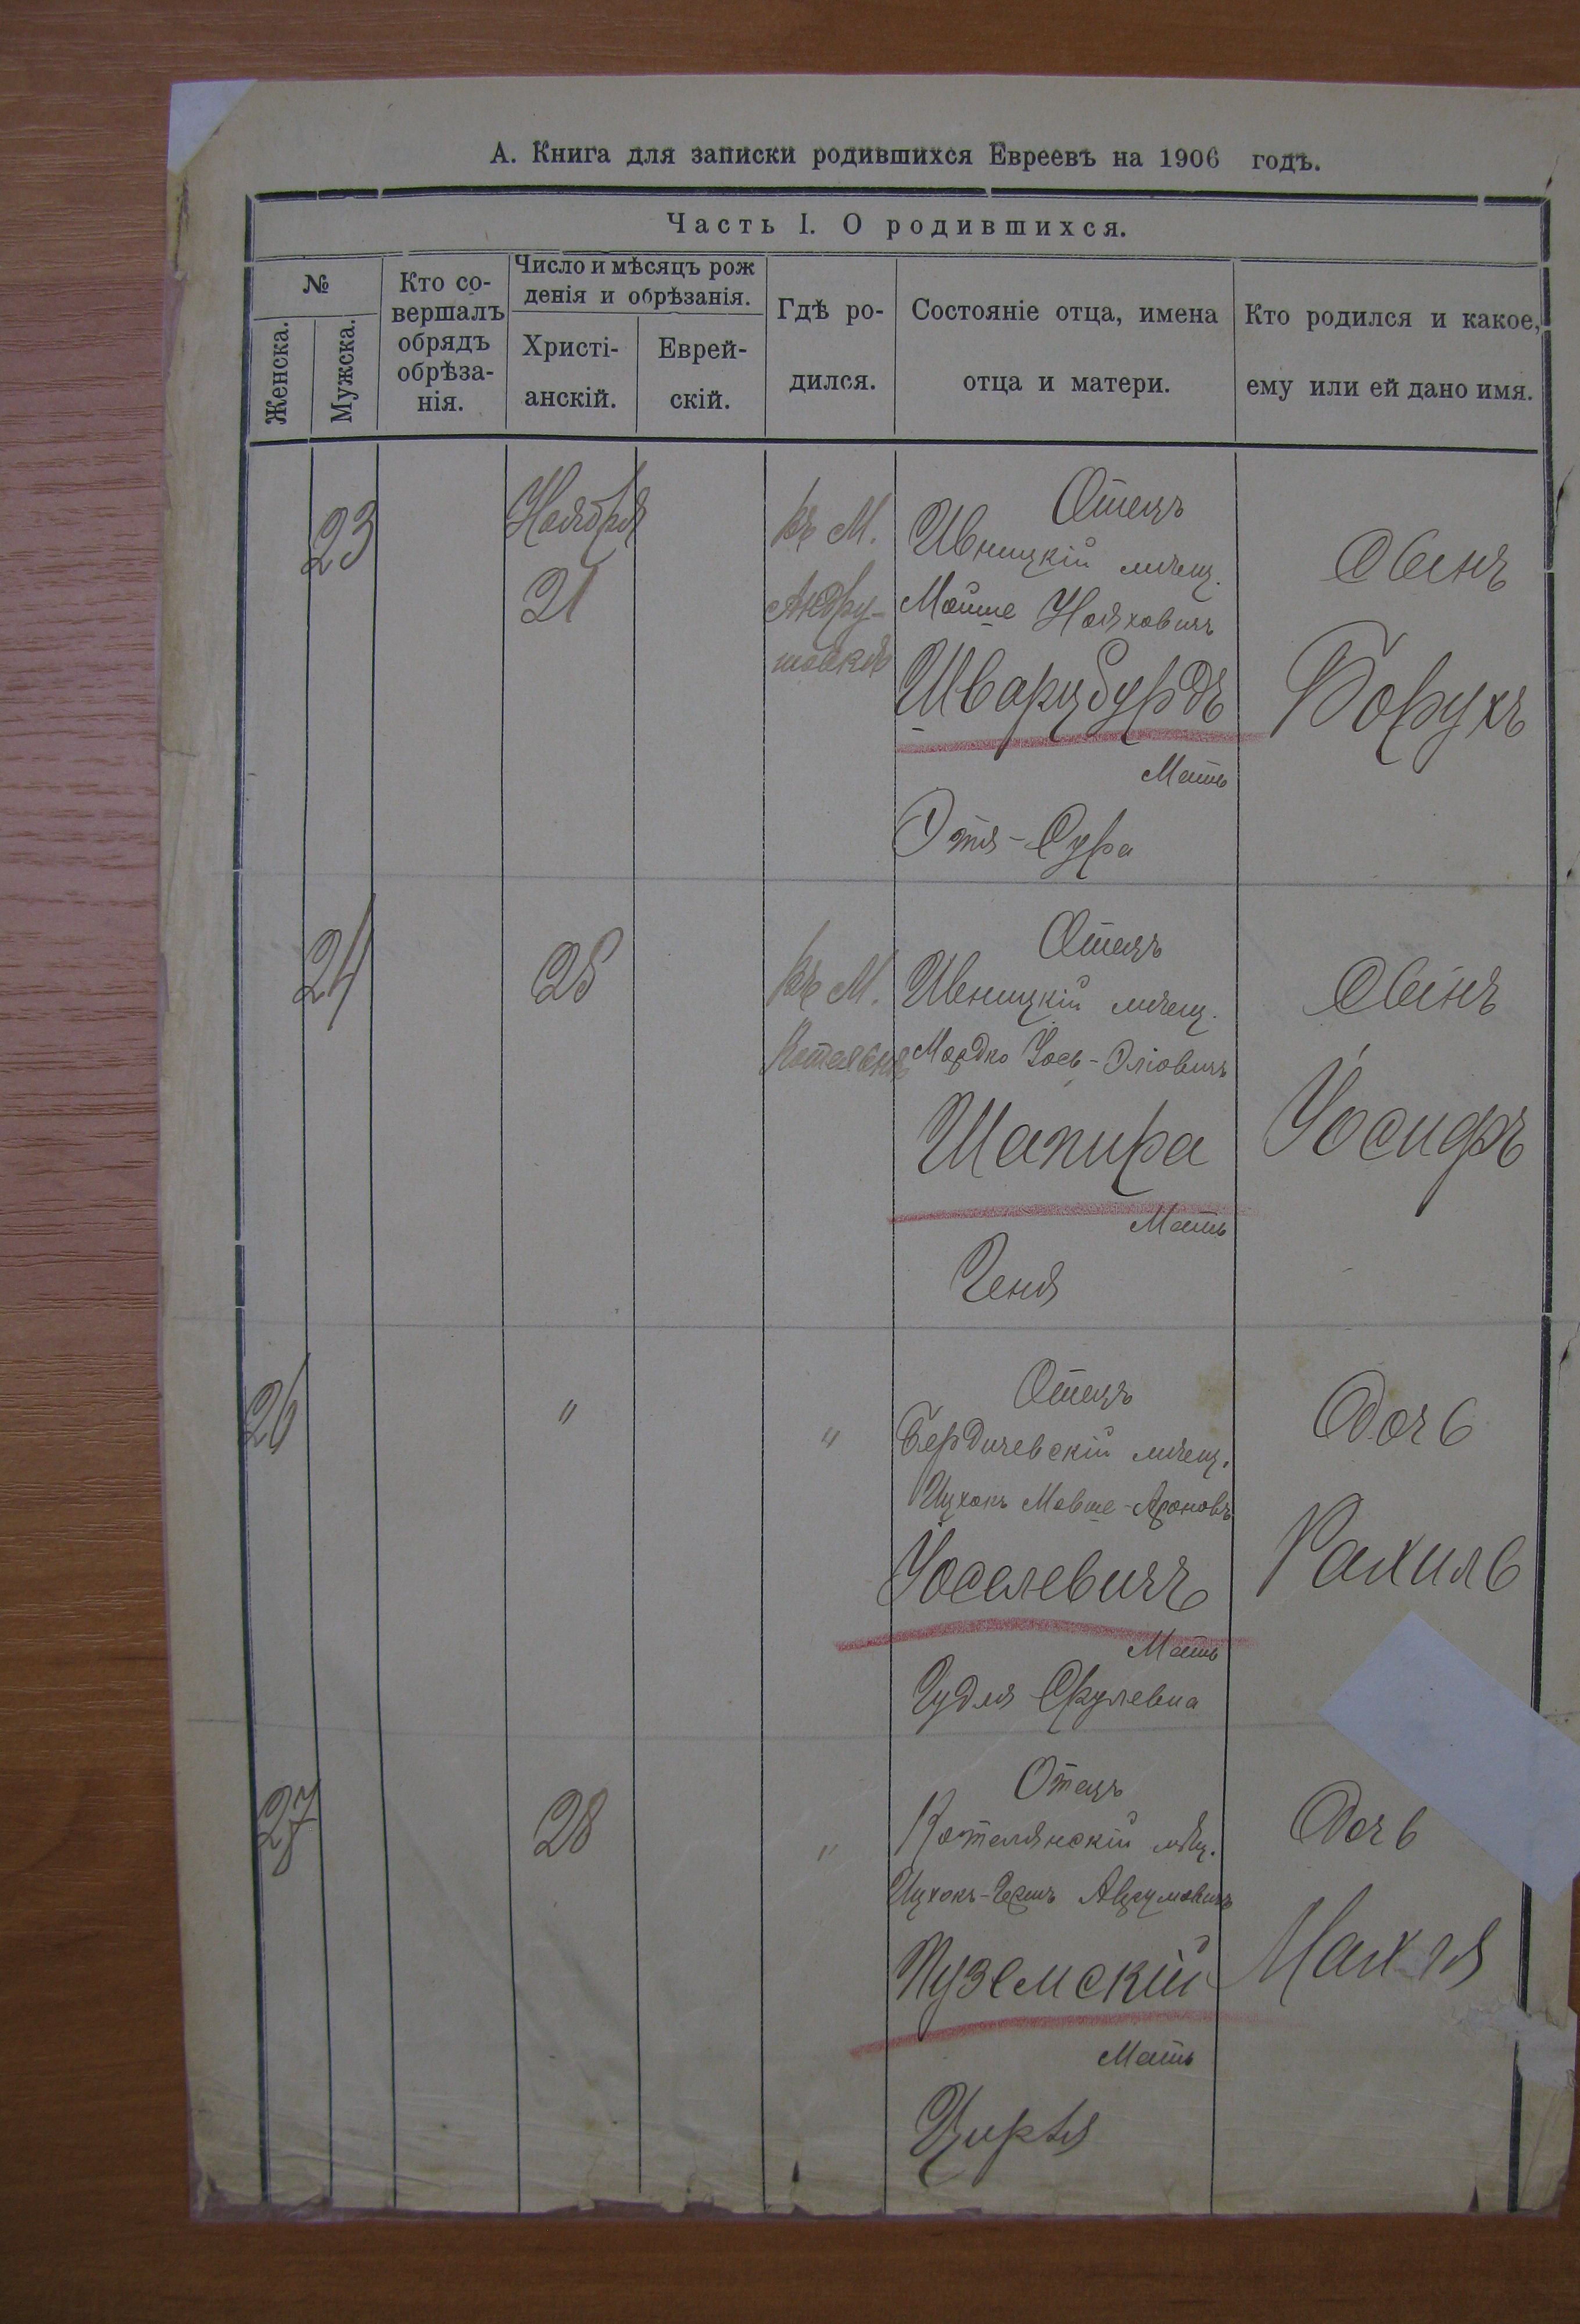 А. Книга для записки родившихся Евреевъ на 1906 годъ.
Часть I. О родившихся.
№
Женска.
Мужска.
Кто со-
вершалъ
обрядъ
обрѣза-
нія.
Число и мѣсяцъ рож
денія и обрѣзанія.
Христі-
анскій.
Еврей-
скій.
Гдѣ ро-
дился.
Состояніе отца, имена
отца и матери.
Кто родился и какое,
ему или ей дано имя.
23
Ноября
21
въ М.
Андру-
шовкѣ
Отецъ
Ивницкій мѣщ.
Мойше Нояховичъ
Шварцбурдъ
Мать
Этя-Сура
Сынъ
Борухъ
24
25
въ М.
Котельнѣ
Отецъ
Ивницкій мѣщ.
Мордко Іось-Эліовичъ
Шапира
Мать
Геня
Сынъ
Іосифъ
26
"
"
Отецъ
Бердичевскій мѣщ.
Ицхокъ Мовше-Ароновъ
Іоселевичъ
Мать
Гудля Срулевна
Дочь
Рахиль
27
28
"
Отецъ
Котелянскій мѣщ.
Ицхокъ-Гершъ Аврумовичъ
Пуземскій
Мать
Цирля
Дочь
Махля